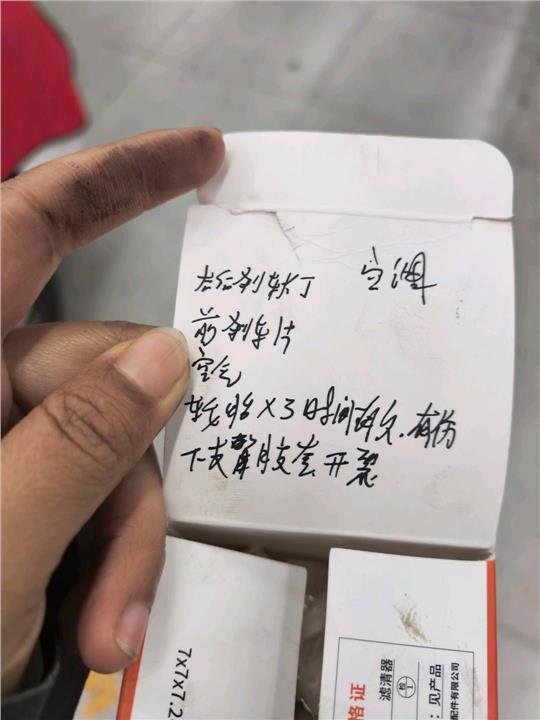 空调
前刹车片
空气
轮胎X3时间较久.有伤
下支臂胶套开裂
7x7x7.2
滤清器
检
1
:见产品
配件有限公司
格证